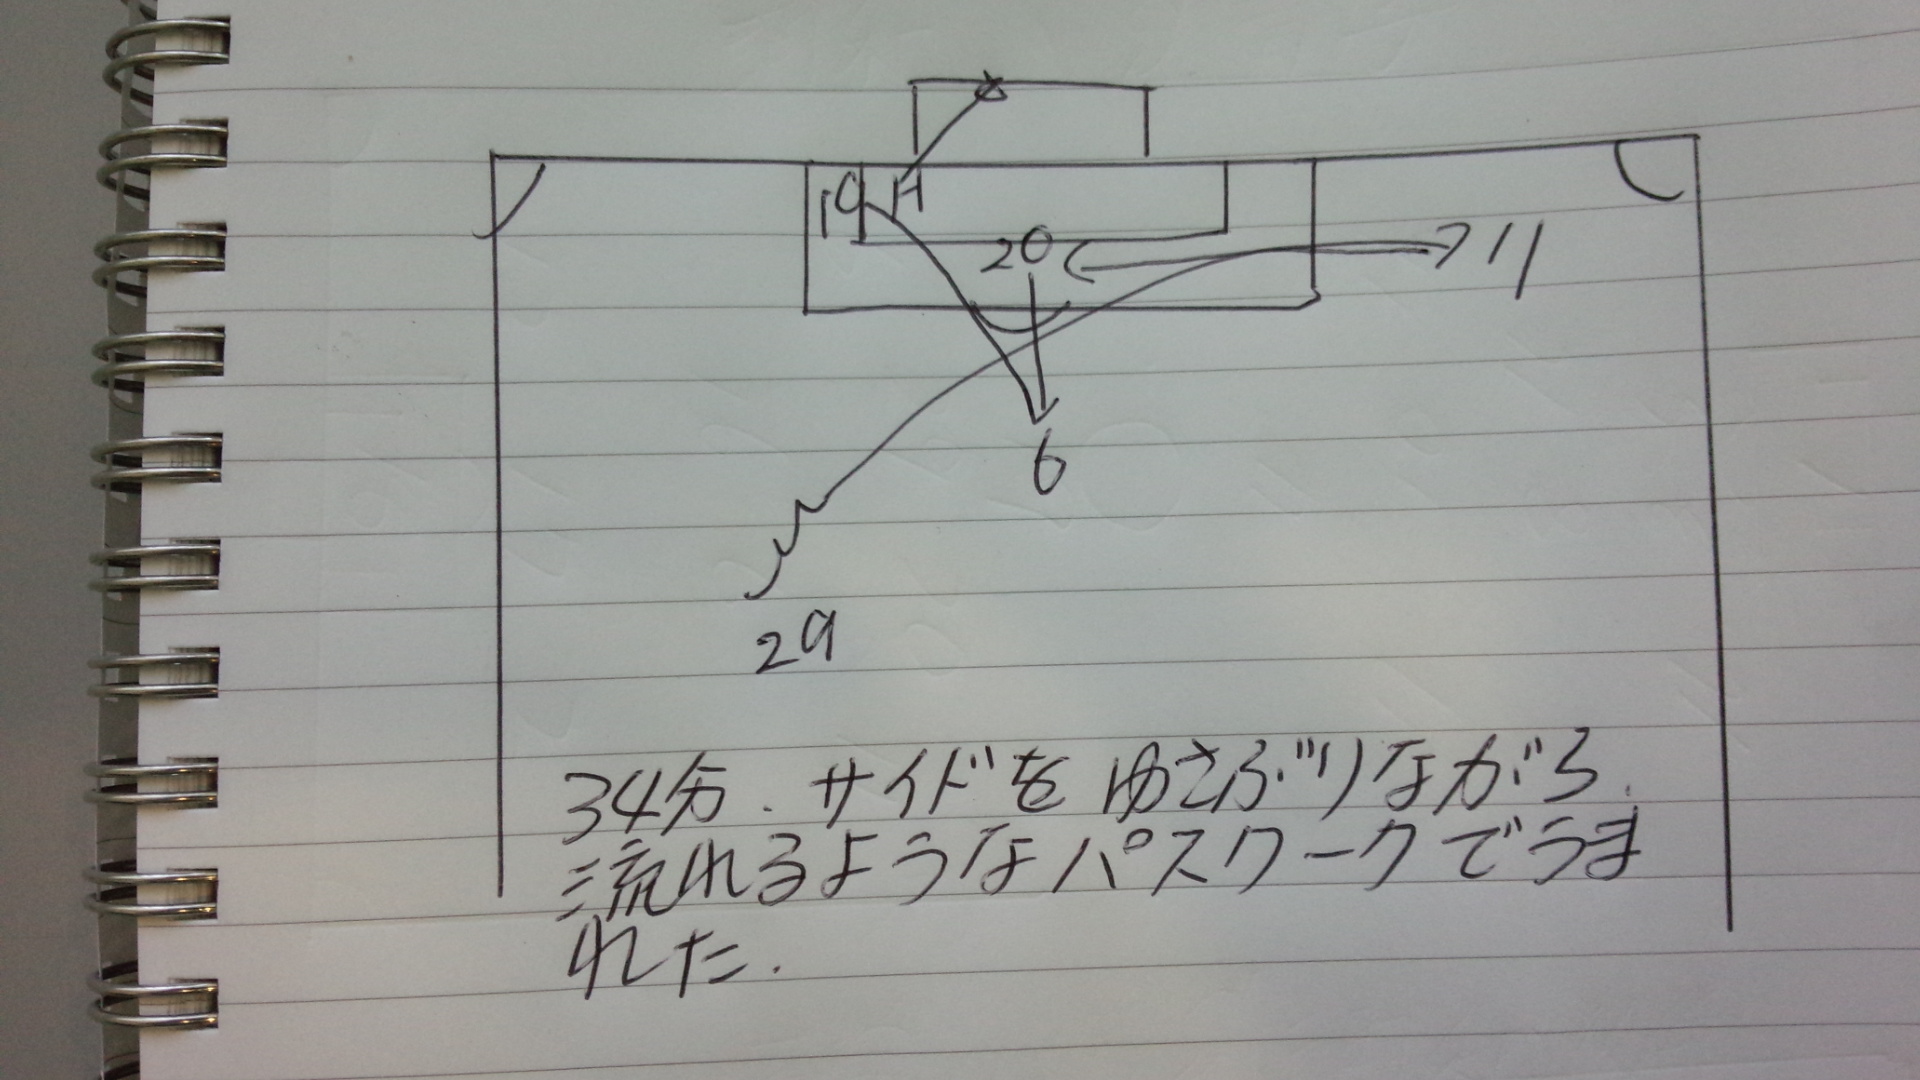 19 H
20
11
6
29
34分.サイドをゆさぶりながら.
流れるようなパスワークでうま
れた.